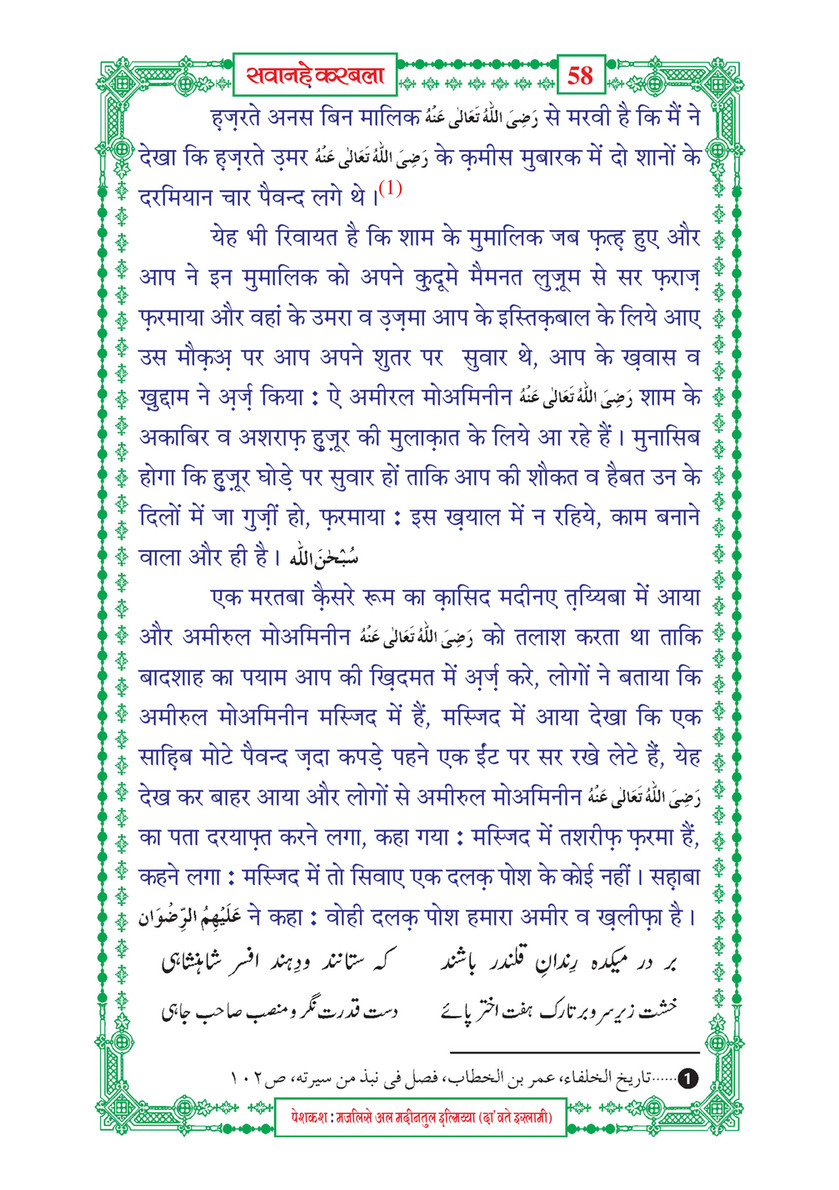 सवानहे करबला
58
ह़ज़रते अनस बिन मालिक رَضِیَ اللّٰہُ تَعَالٰی عَنْہُ से मरवी है कि मैं ने
देखा कि ह़ज़रते उ़मर رَضِیَ اللّٰہُ تَعَالٰی عَنْہُ के क़मीस मुबारक में दो शानों के
दरमियान चार पैवन्द लगे थे ।(1)
येह भी रिवायत है कि शाम के मुमालिक जब फ़त्ह़ हुए और
आप ने इन मुमालिक को अपने क़ुदूमे मैमनत लुज़ूम से सर फ़राज़
फ़रमाया और वहां के उमरा व उ़ज़मा आप के इस्तिक़बाल के लिये आए
उस मौक़अ़ पर आप अपने शुतर पर सुवार थे, आप के ख़वास व
ख़ुद्दाम ने अ़र्ज़ किया : ऐ अमीरल मोअमिनीन رَضِیَ اللّٰہُ تَعَالٰی عَنْہُ शाम के
अकाबिर व अशराफ़ हुज़ूर की मुलाक़ात के लिये आ रहे हैं । मुनासिब
होगा कि हुज़ूर घोड़े पर सुवार हों ताकि आप की शौकत व हैबत उन के
दिलों में जा गुज़ीं हो, फ़रमाया : इस ख़याल में न रहिये, काम बनाने
वाला और ही है । سُبْحٰنَ اللّٰہ
एक मरतबा क़ैसरे रूम का क़ासिद मदीनए त़य्यिबा में आया
और अमीरुल मोअमिनीन رَضِیَ اللّٰہُ تَعَالٰی عَنْہُ को तलाश करता था ताकि
बादशाह का पयाम आप की ख़िदमत में अ़र्ज़ करे, लोगों ने बताया कि
अमीरुल मोअमिनीन मस्जिद में हैं, मस्जिद में आया देखा कि एक
साह़िब मोटे पैवन्द ज़दा कपड़े पहने एक ईंट पर सर रखे लेटे हैं, येह
देख कर बाहर आया और लोगों से अमीरुल मोअमिनीन رَضِیَ اللّٰہُ تَعَالٰی عَنْہُ
का पता दरयाफ़्त करने लगा, कहा गया : मस्जिद में तशरीफ़ फ़रमा हैं,
कहने लगा : मस्जिद में तो सिवाए एक दलक़ पोश के कोई नहीं । सह़ाबा
عَلَیْہِمُ الرِّضْوَان ने कहा : वोही दलक़ पोश हमारा अमीर व ख़लीफ़ा है ।
بر در میکدہ رِندانِ قلندر باشند کہ ستانند ودِہند افسر شاہنشاہی
خشت زیرِ سر و بر تارک ہفت اختر پائے دست قدرت نگر و منصب صاحب جاہی
1......تاریخ الخلفاء، عمر بن الخطاب، فصل فی نبذ من سیرتہ، ص۱۰۲
पेशकश : मजलिसे अल मदीनतुल इल्मिय्या (दा'वते इस्लामी)